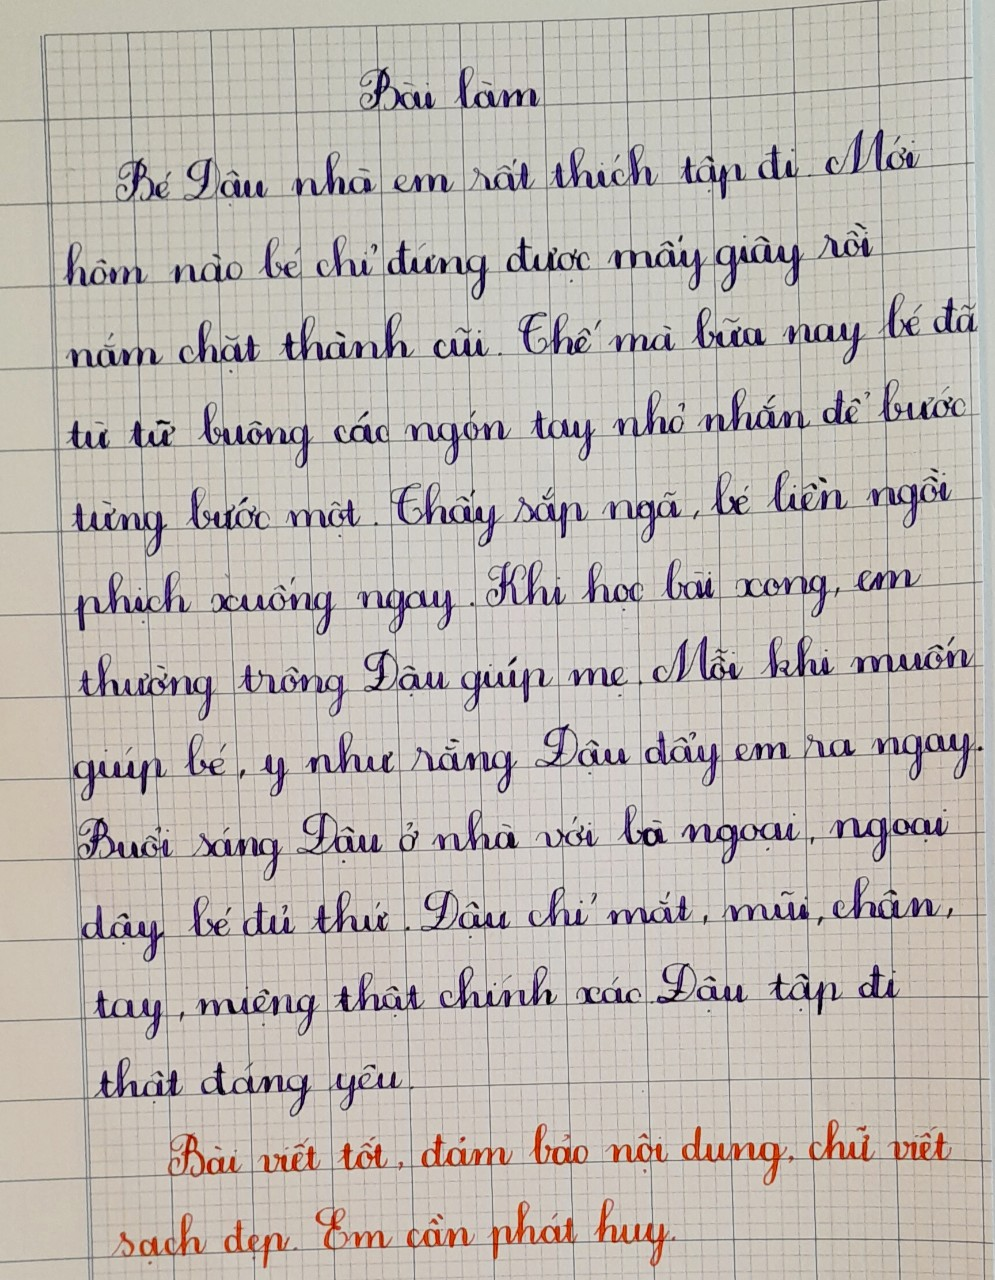 Bài làm
Bé Đậu nhà em rất thích tập đi. Mới
hôm nào bé chỉ đứng được mấy giây rồi
nắm chặt thành cũi. Thế mà bữa nay bé đã
từ từ buông các ngón tay nhỏ nhắn để bước
từng bước một. Thấy sắp ngã, bé liền ngồi
phịch xuống ngay. Khi học bài xong, em
thường trông Đậu giúp mẹ. Mỗi khi muốn
giúp bé, y như rằng Đậu đẩy em ra ngay.
Buổi sáng Đậu ở nhà với bà ngoại, ngoại
dậy bé đủ thứ. Đậu chỉ mắt, mũi, chân,
tay, miệng thật chính xác. Đậu tập đi
thật đáng yêu.
Bài viết tốt, đảm bảo nội dung, chữ viết
sạch đẹp. Em cần phát huy.